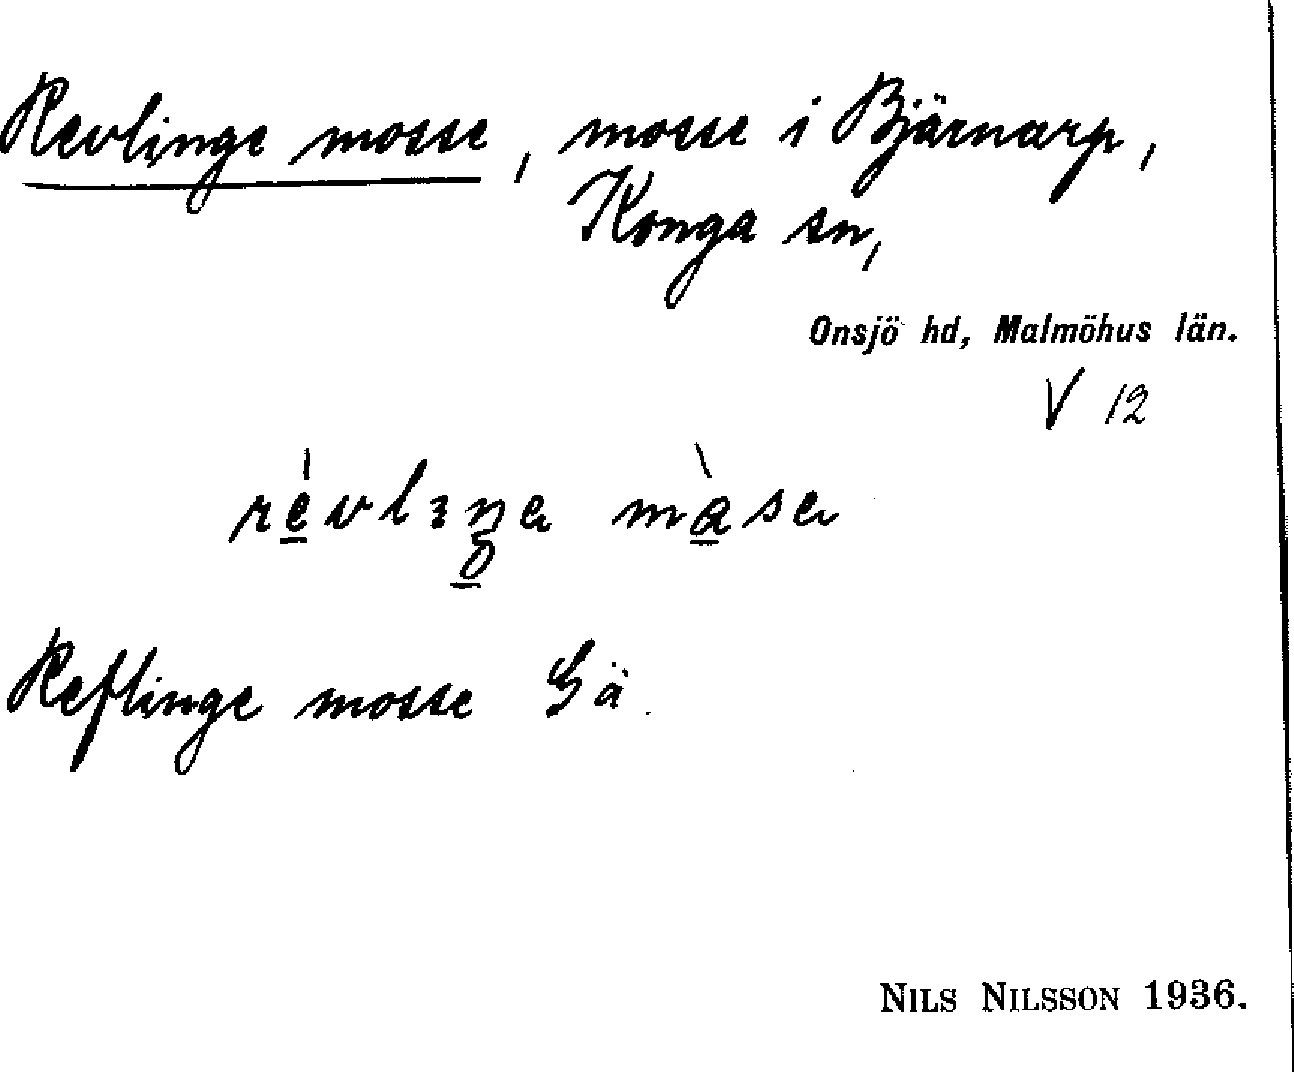 Revlinge mosse, mosse i Bjärnarp,
Konga sn,
Onsjö hd, Malmöhus län.
V 12
Reflinge mosse Gä.
NILS NILSSON 1936.